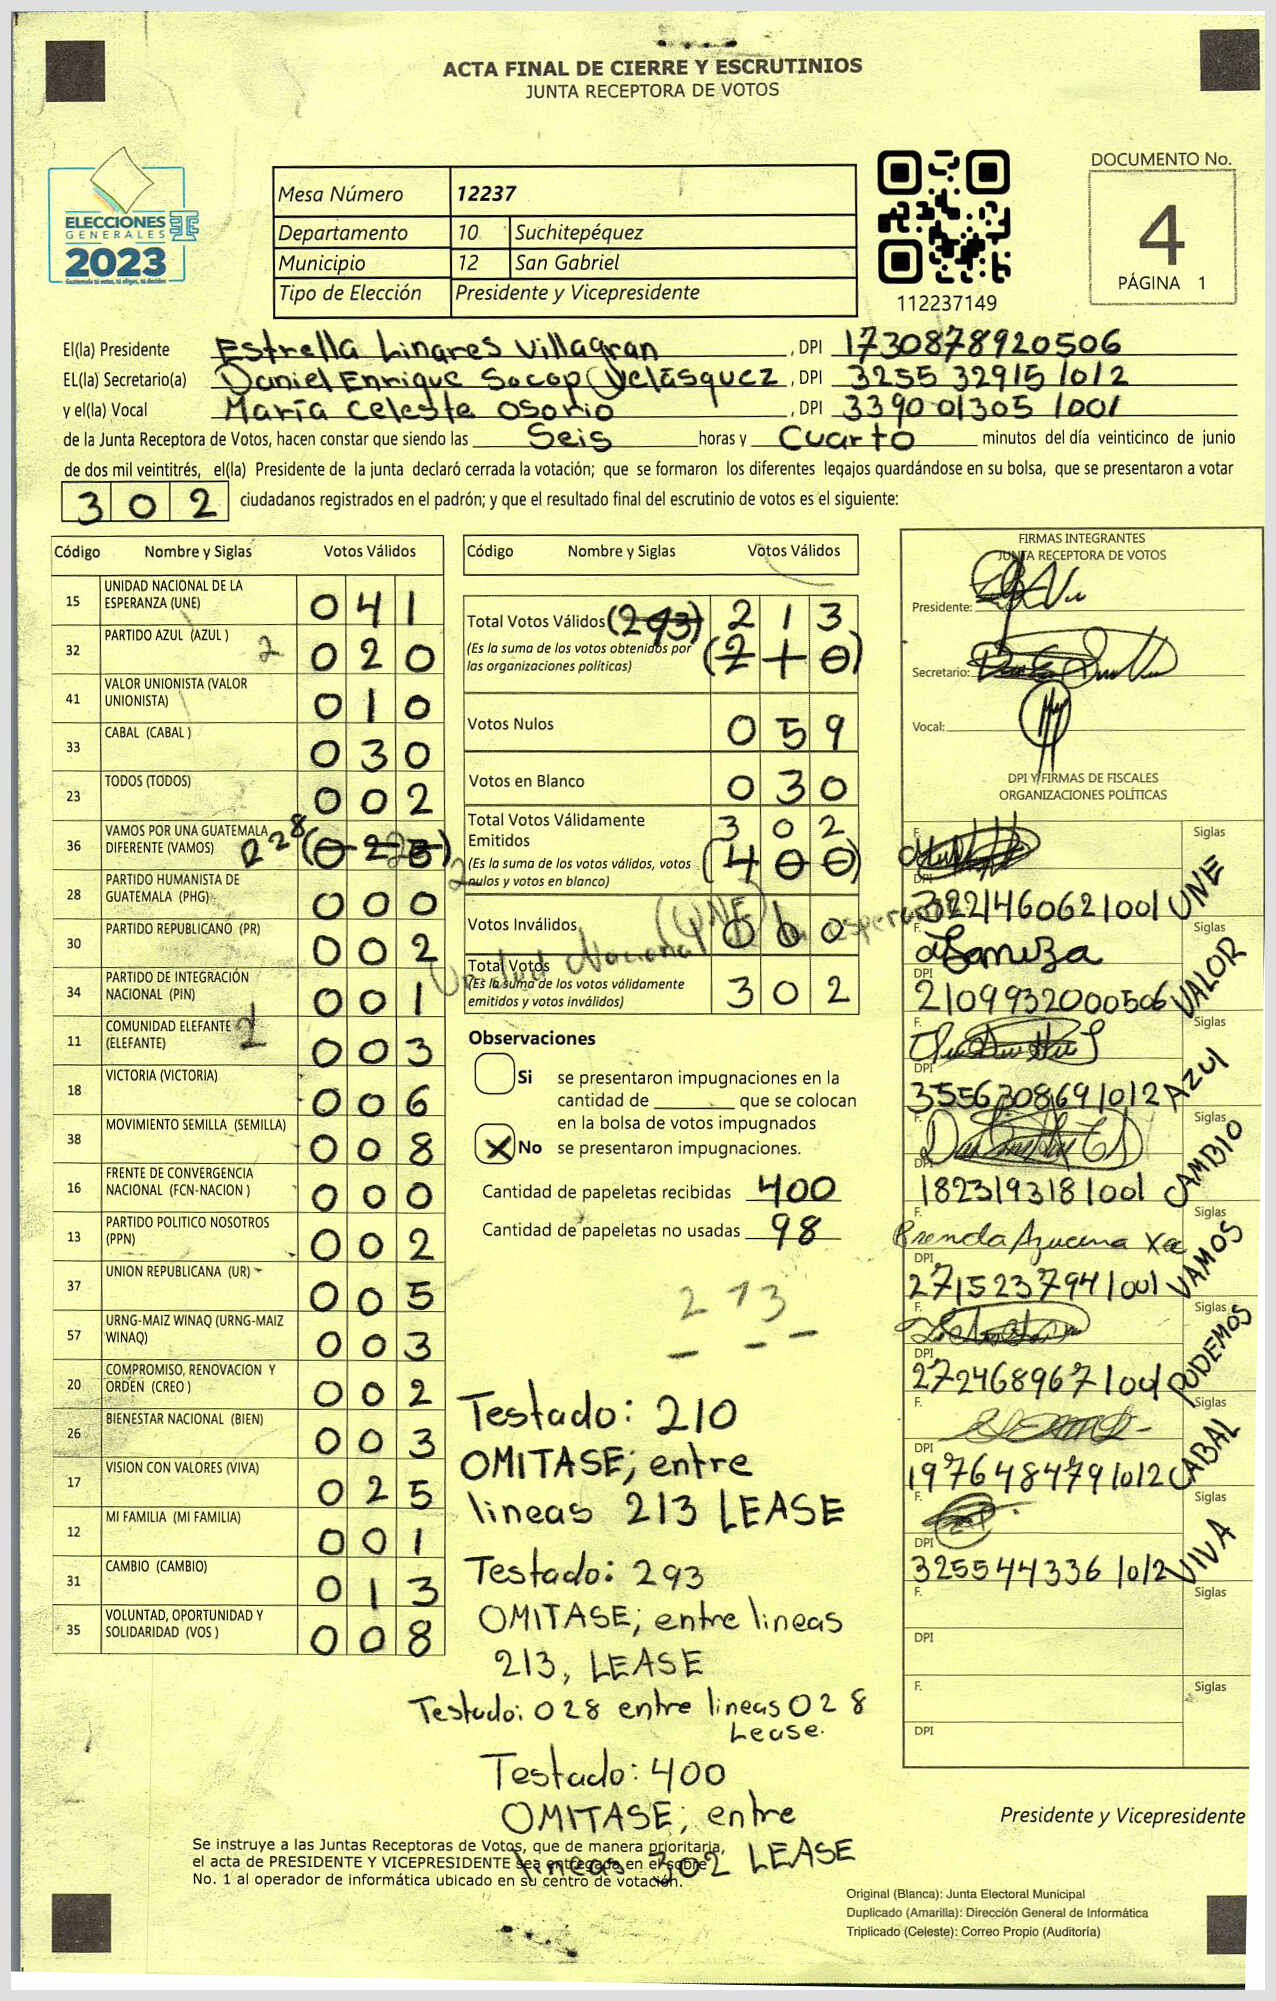 ACTA FINAL DE CIERRE Y ESCRUTINIOS
JUNTA RECEPTORA DE VOTOS
ELECCIONES
GENERALES
2023
Guatemala tú votas, tú eliges, tú decides
Mesa Número 12237
Departamento 10 Suchitepéquez
Municipio 12 San Gabriel
Tipo de Elección Presidente y Vicepresidente
112237149
DOCUMENTO No.
4
PÁGINA 1
El(la) Presidente Estrella Linares Villagran , DPI 1730878920506
EL(la) Secretario(a) Daniel Enrique Socop Velásquez , DPI 3255 32915 1012
y el(la) Vocal María Celeste Osorio , DPI 3390 01305 1001
de la Junta Receptora de Votos, hacen constar que siendo las Seis horas y Cuarto minutos del día veinticinco de junio
de dos mil veintitrés, el(la) Presidente de la junta declaró cerrada la votación; que se formaron los diferentes legajos quardándose en su bolsa, que se presentaron a votar
302 ciudadanos registrados en el padrón; y que el resultado final del escrutinio de votos es el siguiente:
Código Nombre y Siglas Votos Válidos
15 UNIDAD NACIONAL DE LA ESPERANZA (UNE) 041
32 PARTIDO AZUL (AZUL ) 2 020
41 VALOR UNIONISTA (VALOR UNIONISTA) 010
33 CABAL (CABAL ) 030
23 TODOS (TODOS) 002
36 VAMOS POR UNA GUATEMALA DIFERENTE (VAMOS)
28 PARTIDO HUMANISTA DE GUATEMALA (PHG) 000
30 PARTIDO REPUBLICANO (PR) 002
34 PARTIDO DE INTEGRACIÓN NACIONAL (PIN) 001
11 COMUNIDAD ELEFANTE (ELEFANTE) 2 003
18 VICTORIA (VICTORIA) 006
38 MOVIMIENTO SEMILLA (SEMILLA) 008
16 FRENTE DE CONVERGENCIA NACIONAL (FCN-NACION ) 000
13 PARTIDO POLITICO NOSOTROS (PPN) 002
37 UNION REPUBLICANA (UR) 005
57 URNG-MAIZ WINAQ (URNG-MAIZ WINAQ) 003
20 COMPROMISO, RENOVACION Y ORDEN (CREO ) 002
26 BIENESTAR NACIONAL (BIEN) 003
17 VISION CON VALORES (VIVA) 025
12 MI FAMILIA (MI FAMILIA) 001
31 CAMBIO (CAMBIO) 013
35 VOLUNTAD, OPORTUNIDAD Y SOLIDARIDAD (VOS ) 008
Código Nombre y Siglas Votos Válidos
Total Votos Válidos (293) 213
(Es la suma de los votos obtenidos por
las organizaciones políticas) (210)
Votos Nulos 059
Votos en Blanco 030
Total Votos Válidamente Emitidos 302
(Es la suma de los votos válidos, votos
nulos y votos en blanco) (400)
Votos Inválidos 000
Unidad Nacional (UNE) la esperanza
Total Votos
(Es la suma de los votos válidamente
emitidos y votos inválidos) 302
Observaciones
Si se presentaron impugnaciones en la
cantidad de ________ que se colocan
en la bolsa de votos impugnados
X No se presentaron impugnaciones.
Cantidad de papeletas recibidas 400
Cantidad de papeletas no usadas 98
213
Testado: 210
OMITASE; entre
lineas 213 LEASE
Testado: 293
OMITASE; entre lineas
213, LEASE
Testado: 028 entre lineas 028
Lease.
Testado: 400
OMITASE; entre
lineas 302 LEASE
FIRMAS INTEGRANTES
JUNTA RECEPTORA DE VOTOS
Presidente:
Secretario:
Vocal:
DPI Y FIRMAS DE FISCALES
ORGANIZACIONES POLÍTICAS
F. Siglas
DPI 3221460621001 UNE
F. Siglas
DPI 2109932000506 VALOR
F. Siglas
DPI 3556308691012 AZUL
F. Siglas
DPI 1823193181001 CAMBIO
F. Brenda Azucena Xa Siglas
DPI 2715237941001 VAMOS
F. Siglas
DPI 2724689671001 PODEMOS
F. Siglas
DPI 1976484791012 CABAL
F. Siglas
DPI 3255443361012 VIVA
F. Siglas
DPI
F. Siglas
DPI
Presidente y Vicepresidente
Se instruye a las Juntas Receptoras de Votos, que de manera prioritaria,
el acta de PRESIDENTE Y VICEPRESIDENTE sea entregada en el sobre
No. 1 al operador de informática ubicado en su centro de votación.
Original (Blanca): Junta Electoral Municipal
Duplicado (Amarilla): Dirección General de Informática
Triplicado (Celeste): Correo Propio (Auditoría)